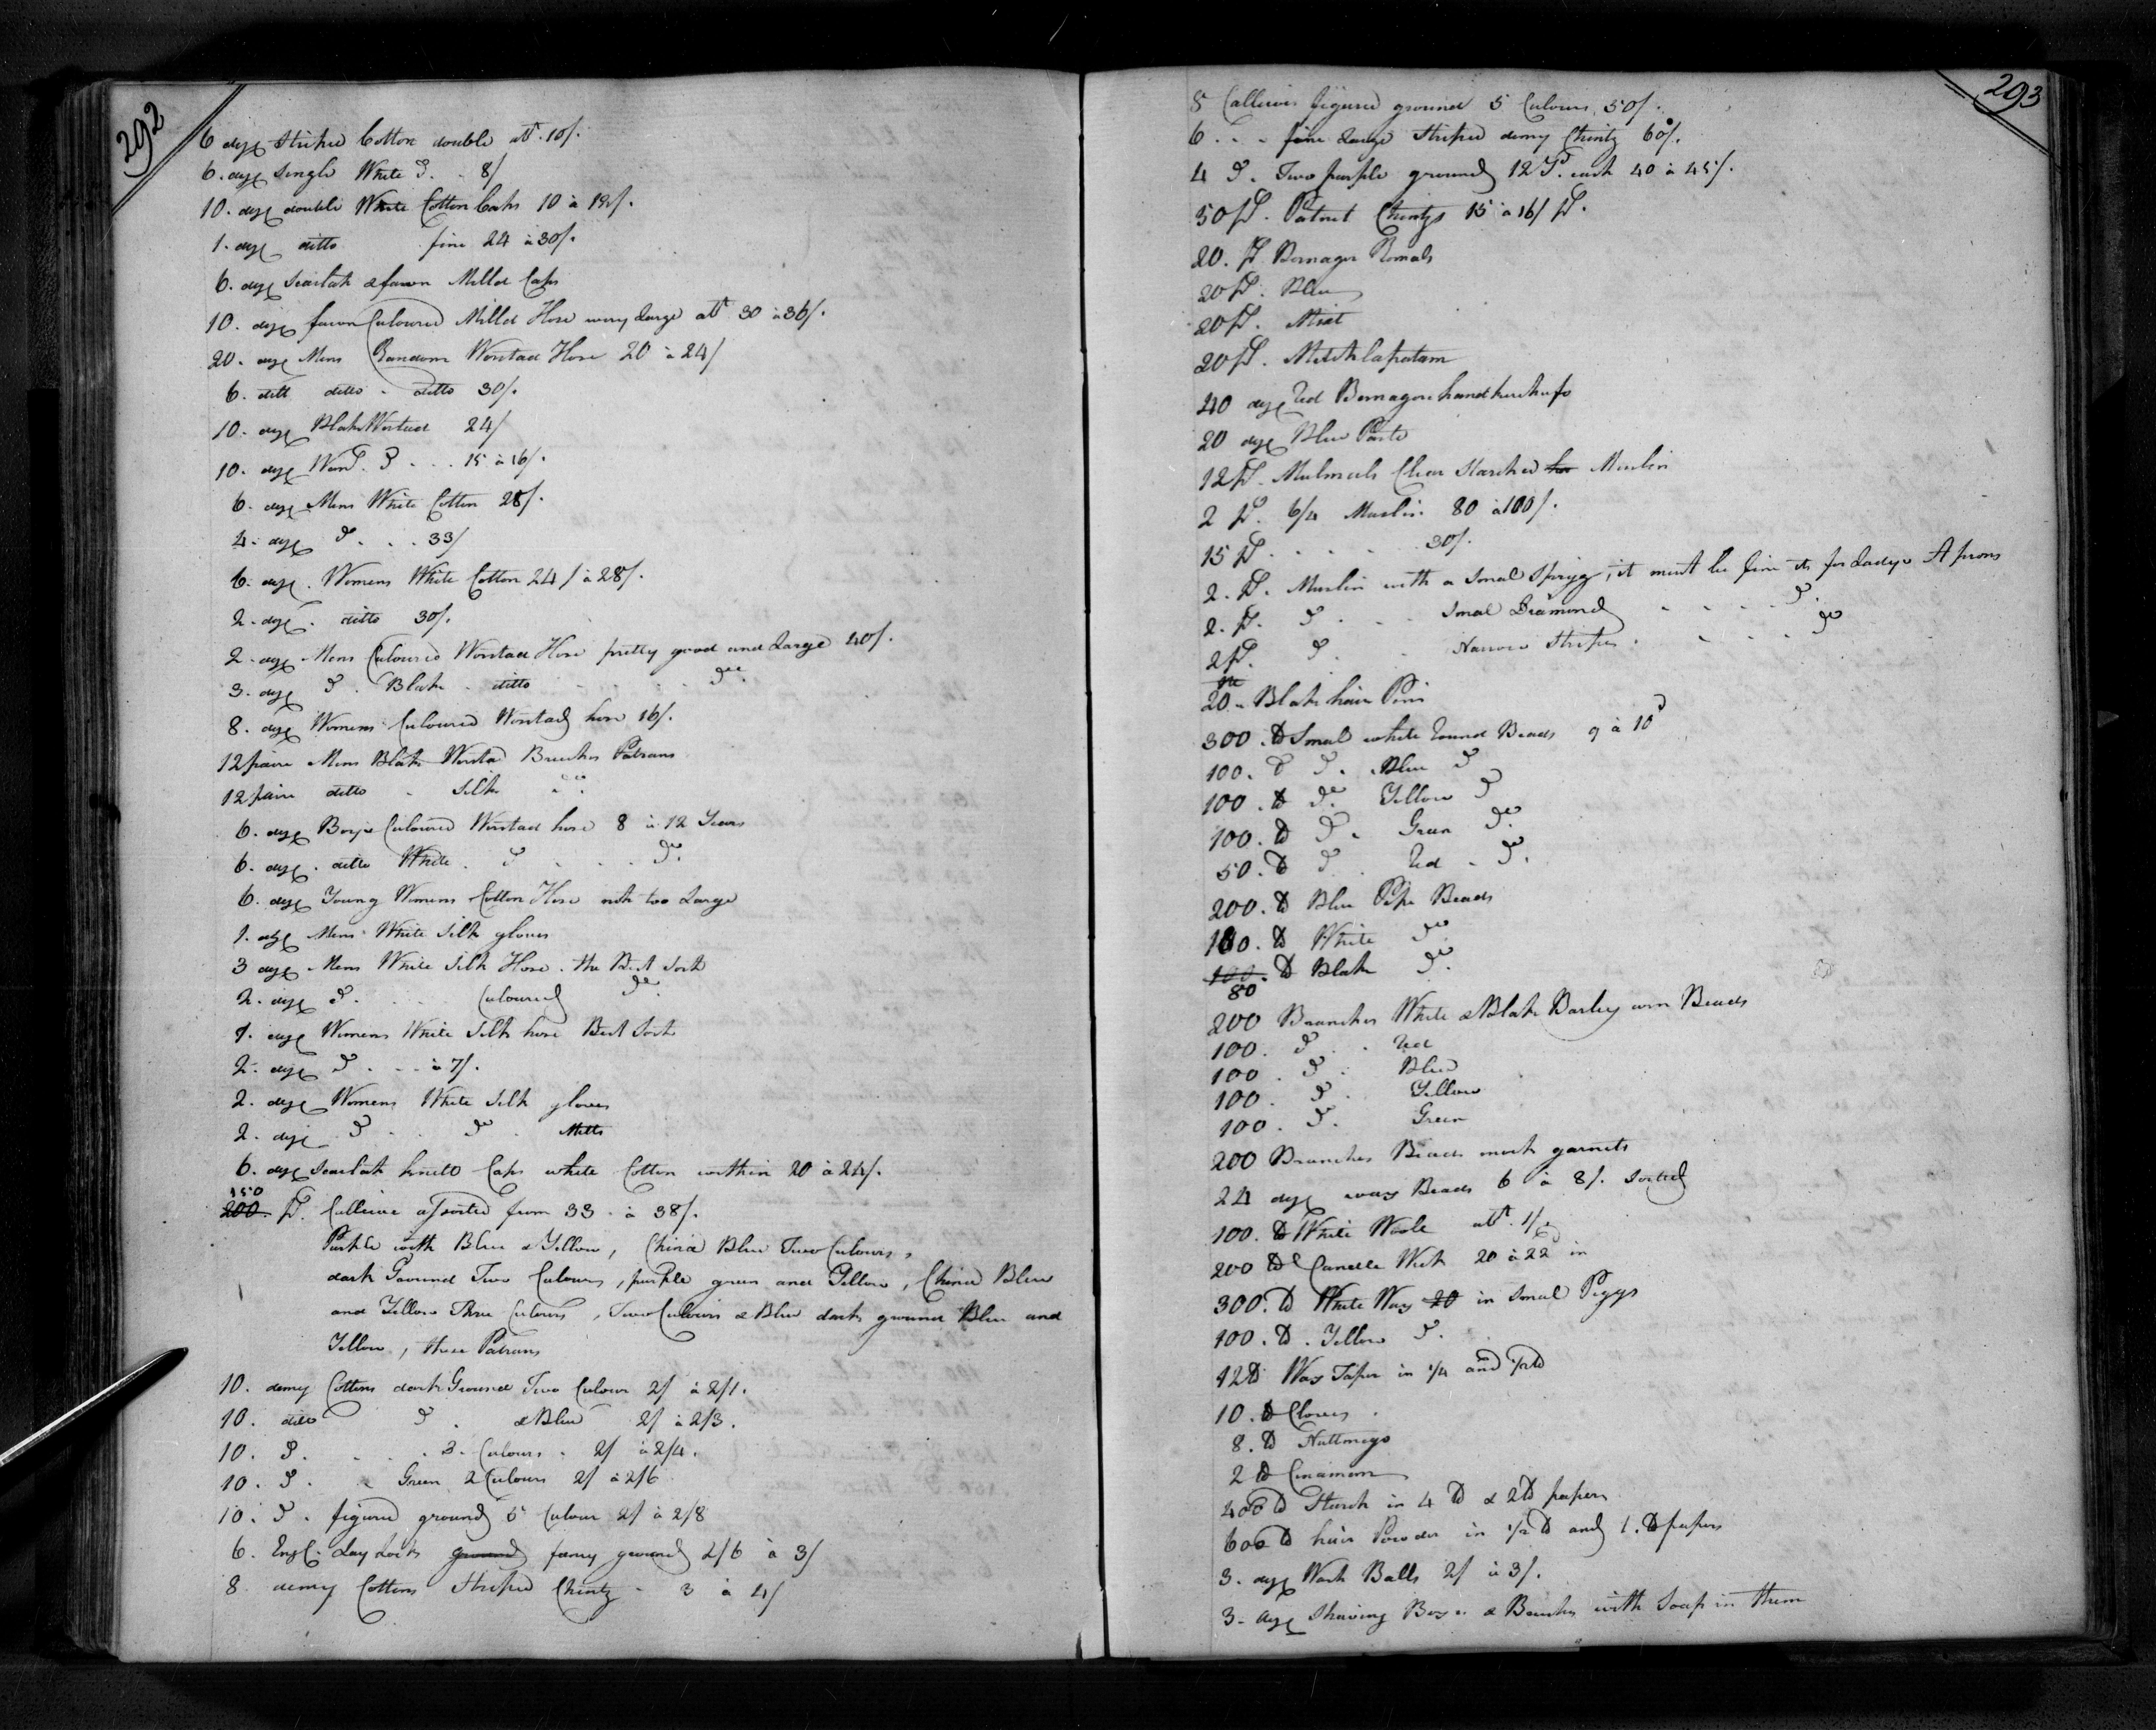 292
6 doz Striped Cotton double att. 10/.
6. doz Single White Do. . 8/
10. doz double White Cotton Caps 10 à 18/.
1. doz ditto fine 24 à 30/.
6. doz Scarlat & fawn Milld Caps
10. doz fawn Culoured Milld Hose very Large att 30 à 36/.
20. doz Mens Random Worstad Hose 20 à 24/
6. ditt ditto - ditto 30/.
10. doz Blak Worstad 24/
10. doz Wom. Do . . . 15 à 16/.
6. doz Mens White Cotton 28/.
4. doz Do . . . 33/
6. doz. Womens White Cotton 24/ à 28/.
2. doz. ditto 30/.
2. doz Mens Culoured Worstad Hose pretty good and Large 40/.
3. doz Do. Blak . ditto - - - - do.
8. doz Womens Culoured Worstad hose 16/.
12 paire Mens Blak Worstad Breeches Patrans
12 paire ditto - Silk do.
6. doz Boys Culoured Worstad hose 8 à 12 Years
6. doz. ditto White. Do - - - Do.
6. doz Young Womens Cotton Hose not too Large
1. doz Mens White Silk gloves
3 doz Mens White Silk Hose. the Best Sort
2. doz Do. Culoured do.
1. doz Womens White Silk hose Best Sort
2. doz Do. - - à 7/.
2. doz Womens White Silk gloves
2. doz Do . . Do . Mitts
6. doz Scarlatt knitto Caps white Cotton within 20 à 24/.
150
200. Ps. Callicoe assorted from 33 - à 38/.
Purple with Blue & Yellow, China Blue Two Culours,
dark Ground Two Culours, purple green and Yellow, China Blue
and Yellow Three Culours, Two Culours & Blue dark ground Blue and
Yellow, these Patrans
10. demy Cottons dark Ground Two Culour 2/ à 2/1.
10. ditto Do. & Blue 2/ à 2/3.
10. Do. . . . 3. Culours. 2/ à 2/4.
10. Do. & Green 2 Culours 2/ à 2/6
10. Do. figured ground 5 Culour 2/ à 2/8
6. Engl. Lay Locks ground fancy ground 2/6 à 3/
8 demy Cottons Striped Chintz - 3 à 4/
293
8 Callicoes figured ground 5 Culours, 50/.
6. . . fine Large Striped demy Chintz 60/.
4 Do. Two purple ground 12 Ps. each 40 à 45/.
50 Ps. Patnet Chintzs 15 à 16/ Ps.
20. Ps Bernagor Romals
20 Ps. Blue
20 Ps. Mixt
20 Ps. Mitchlapatam
40 doz Red Bernagore handkerchufs
20 doz Blue Paste
12 Ps. Mulmuls Clear Starched for Muslin
2 Ps. 6/4 Muslin 80 à 100/.
15 Ps. . . . . 30/.
2. Ps. Muslin with a Smal Sprigg, it must be fine its for Ladys Aprons
2. Ps. Do. . . Smal Diamond - - - - Do.
2 Ps. Do. . Narrow Stripes. - - - do
20 - Blak hair Pins
300. lb Smal white Round Beads 9 à 10d
100. lb Do. Blue Do
100. lb Do. Yellow Do
100. lb Do. Green Do.
50. lb Do. Red - Do.
200. lb Blue Pipe Beads
100. lb White Do
100. lb Blak Do.
80
200 Branches White & Blak Barley corn Beads
100. Do . . Red
100. Do . Blue
100. Do . Yellow
100. Do. Green
200 Branches Beads mock garnets
24 doz wax Beads 6 à 8/. Sorted
100. lb White Woole att. 1/6
200 lb Candle Wick 20 à 22 in
300. lb White Wax 20 in Smal Piggs
100. lb. Yellow Do.
12 lb Wax Taper in 1/4 and 1/2 lb
10. lb Cloves.
8. lb Nuttmegs
2 lb Cinamom
400 lb Starch in 4 lb & 2 lb papers
600 lb hair Powder in 1/2 lb and 1. lb papers
3. doz Wash Balls 2/ à 3/.
3. doz Shaving Boxes & Brushes with Soap in them